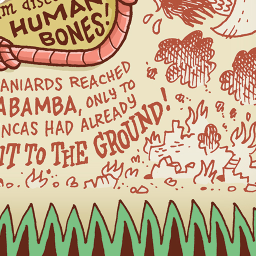 m disc
HUMAN
BONES!
ANIARDS REACHED
ABAMBA, ONLY TO
NCAS HAD ALREADY
IT TO THE GROUND!